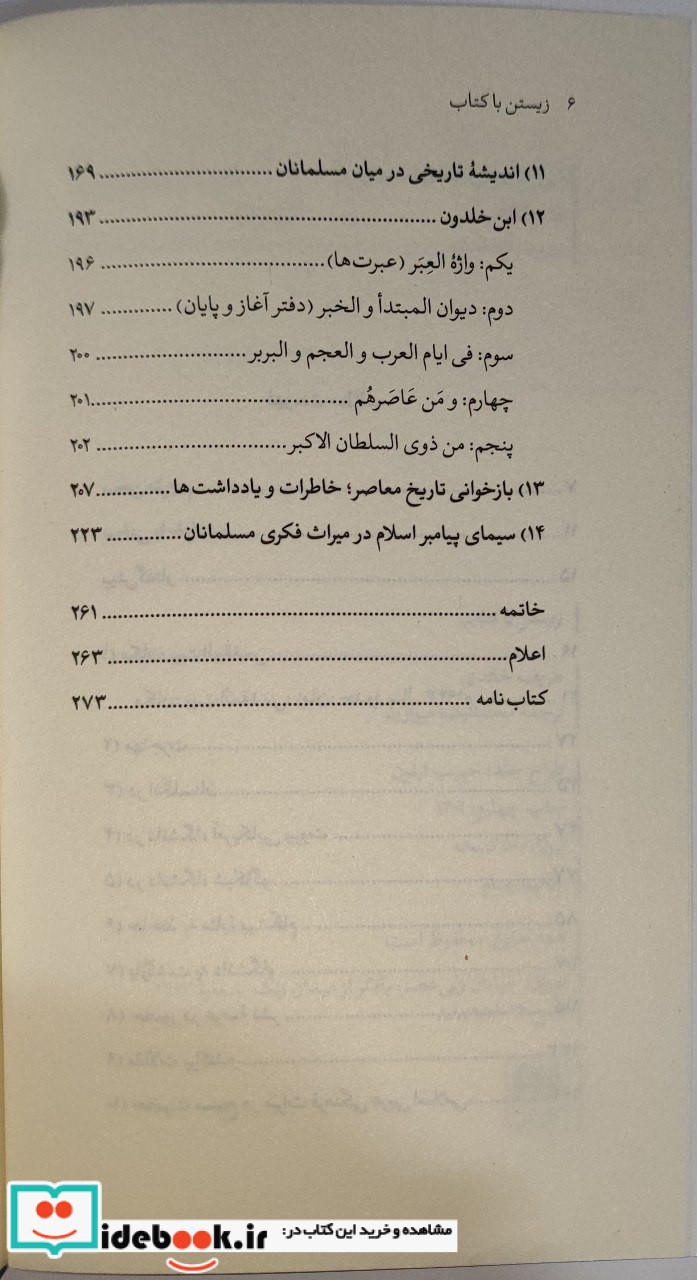 ۶ زیستن با کتاب
۱۱) اندیشهٔ تاریخی در میان مسلمانان ................................. ۱۶۹
۱۲) ابن خلدون ................................................................ ۱۹۳
یکم: واژهٔ العِبَر (عبرت‌ها) ........................................... ۱۹۶
دوم: دیوان المبتدأ و الخبر (دفتر آغاز و پایان) ............. ۱۹۷
سوم: فی ایام العرب و العجم و البربر ............................ ۲۰۰
چهارم: و مَن عَاصَرهُم ................................................. ۲۰۱
پنجم: من ذوی السلطان الاکبر .................................... ۲۰۲
۱۳) بازخوانی تاریخ معاصر؛ خاطرات و یادداشت‌ها .............. ۲۰۷
۱۴) سیمای پیامبر اسلام در میراث فکری مسلمانان .............. ۲۲۳
خاتمه ........................................................................... ۲۶۱
اعلام ............................................................................ ۲۶۳
کتاب‌نامه ..................................................................... ۲۷۳
مشاهده و خرید این کتاب در:
idebook.ir